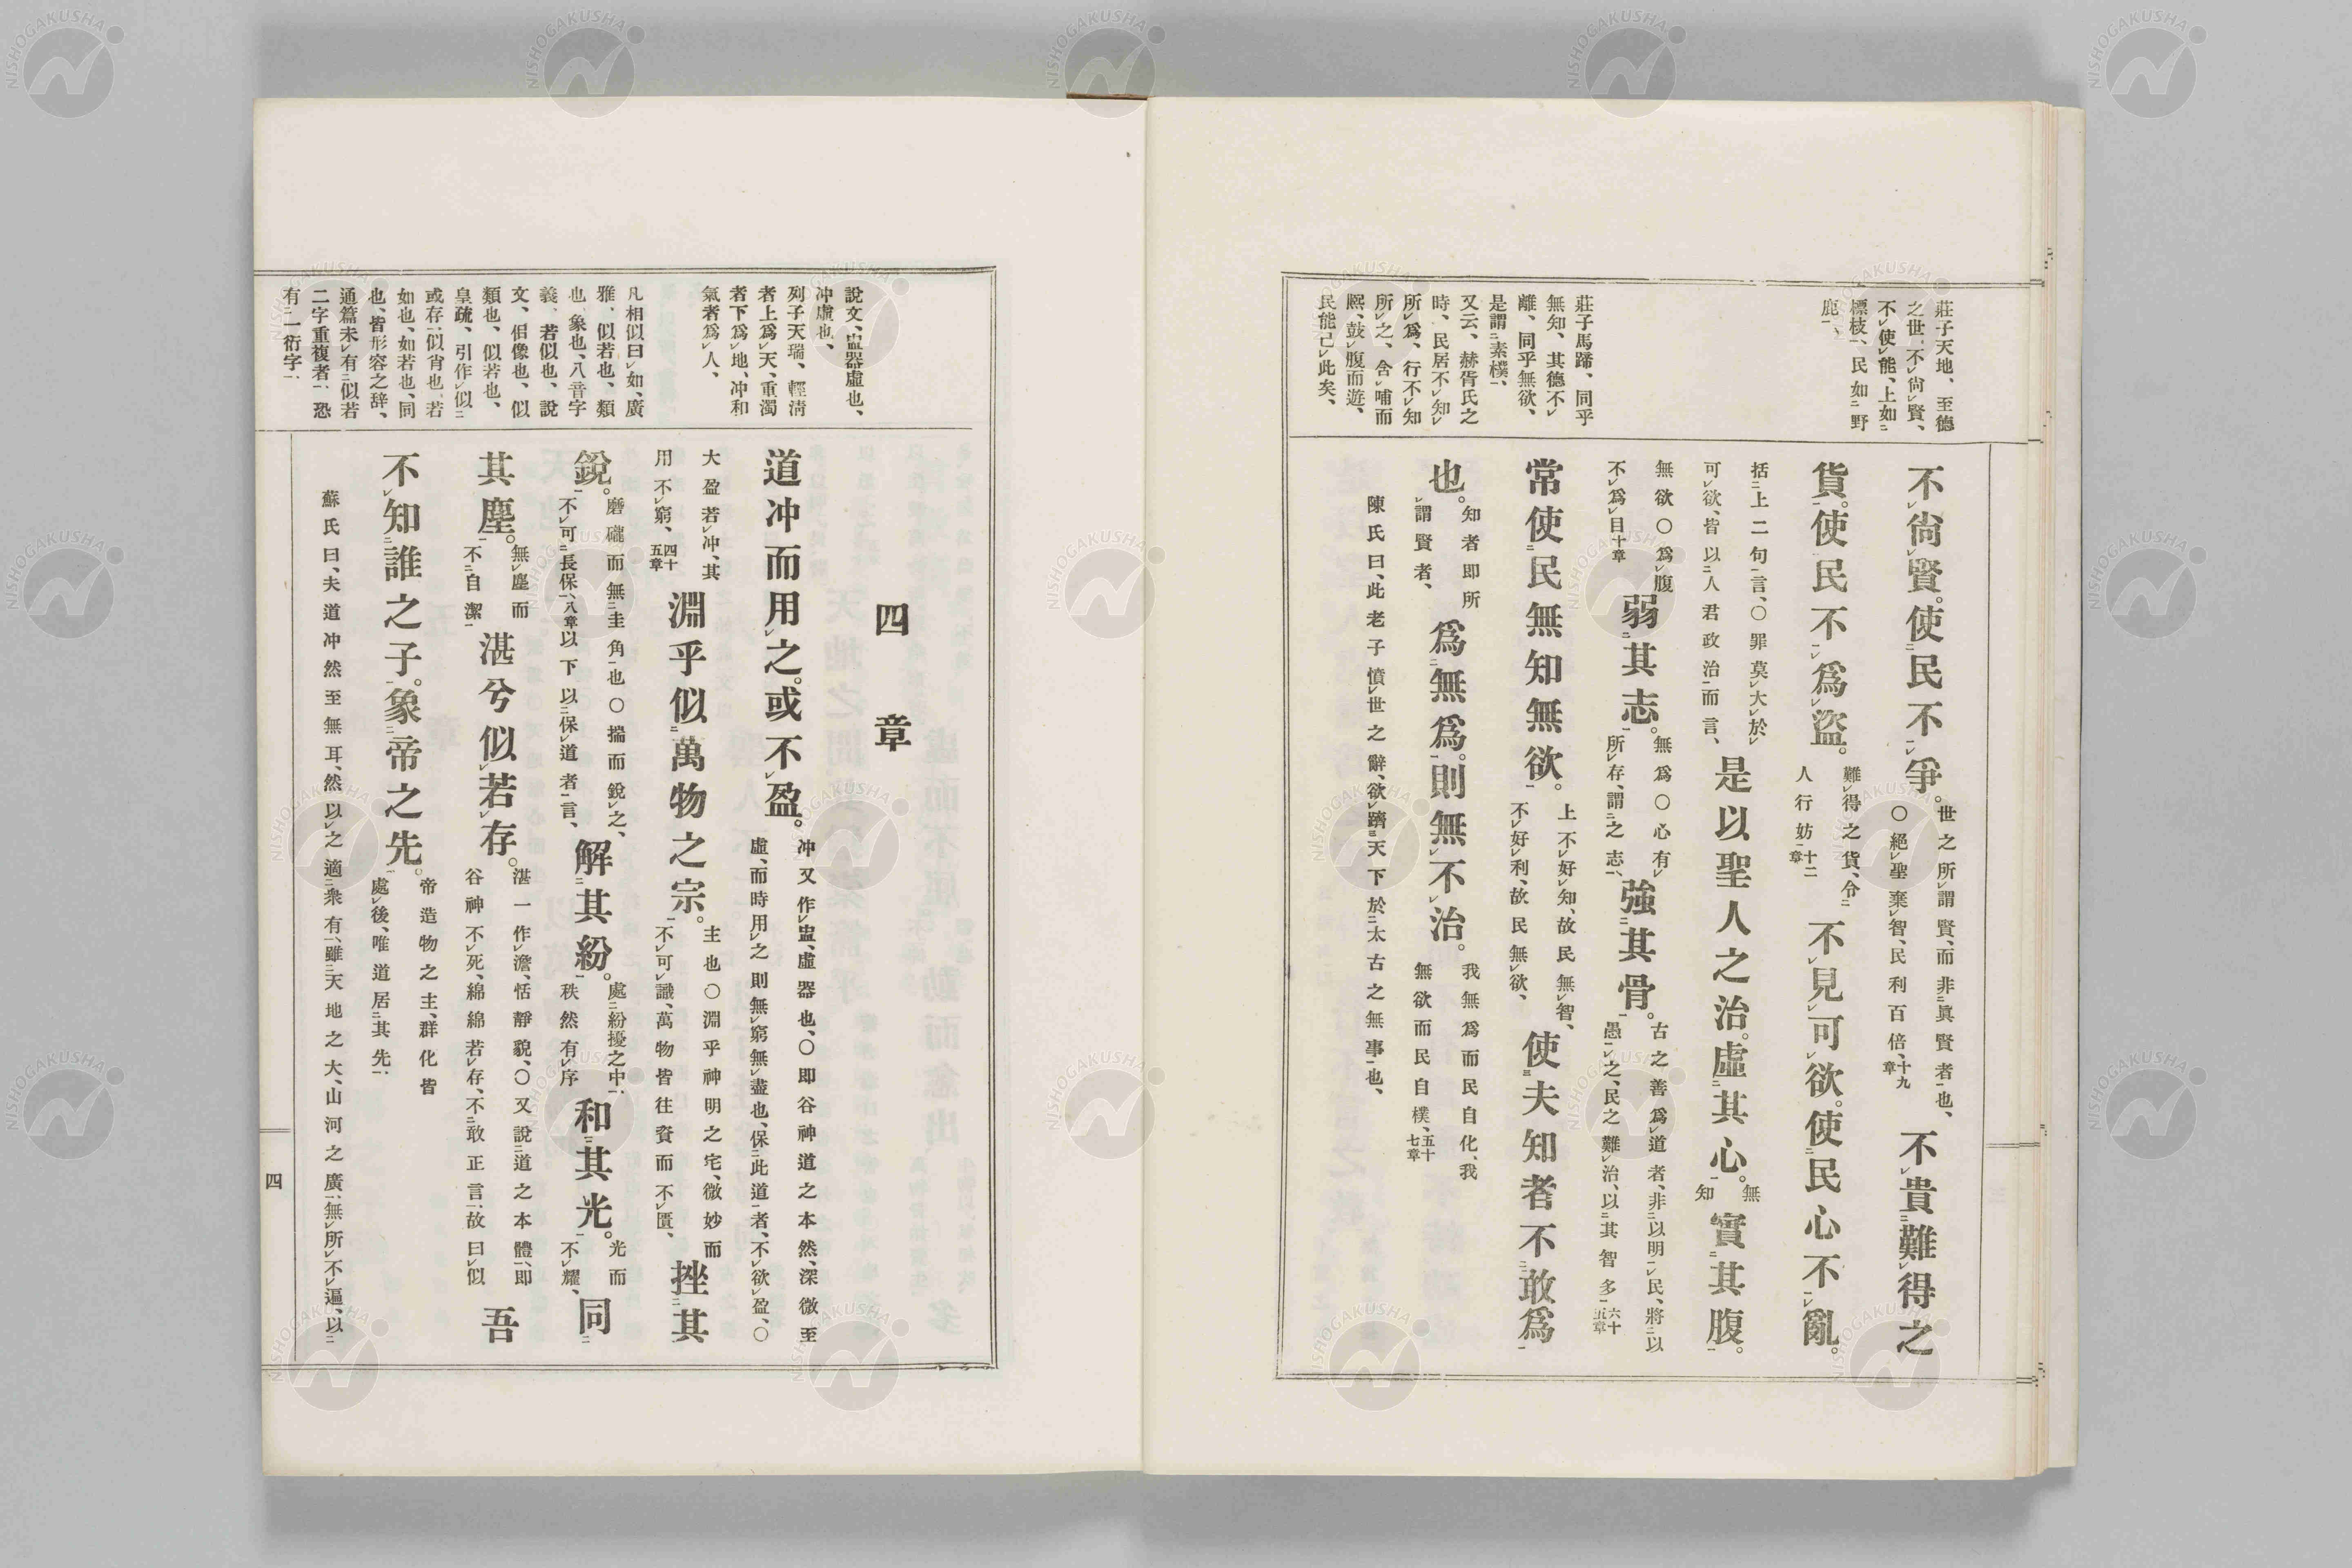 莊子天地、至德
之世、不尙賢、
不使能、上如
標枝、民如野
鹿、
莊子馬蹄、同乎
無知、其德不
離、同乎無欲、
是謂素樸、
又云、赫胥氏之
時、民居不知
所爲、行不知
所之、含哺而
熙、鼓腹而遊、
民能已此矣、
不尙賢。使民不爭。世之所謂賢、而非眞賢者也、〇絕聖棄智、民利百倍、十九章不貴難得之
貨。使民不爲盜。難得之貨、令人行妨十二章不見可欲。使民心不亂。
括上二句言、〇罪莫大於可欲、皆以人君政治而言、是以聖人之治。虛其心。無知實其腹。
無欲〇爲腹不爲目十章弱其志。無爲〇心有所存、謂之志、強其骨。古之善爲道者、非以明民、將以愚之、民之難治、以其智多六十五章
常使民無知無欲。上不好知、故民無智、不好利、故民無欲、使夫知者不敢爲
也。知者即所謂賢者、爲無爲。則無不治。我無爲而民自化、我無欲而民自樸、五十七章
陳氏曰、此老子憤世之辭、欲躋天下於太古之無事也、
說文、盅器虛也、
冲虛也、
列子天瑞、輕淸
者上爲天、重濁
者下爲地、冲和
氣者爲人、
凡相似曰如、廣
雅、似若也、類
也、象也、八音字
義、若似也、說
文、佀像也、似
類也、似若也、
皇疏、引作似
或存、似肖也、若
如也、如若也、同
也、皆形容之辞、
通篇未有似若
二字重複者、恐
有一衍字、
四章
道冲而用之。或不盈。冲又作盅、虛器也、〇即谷神道之本然、深微至虛、而時用之則無窮無盡也、保此道者、不欲盈、〇
大盈若冲、其用不窮、四十五章淵乎似萬物之宗。主也〇淵乎神明之宅、微妙而不可識、萬物皆往資而不匱、挫其
銳。磨礲而無圭角也〇揣而銳之、不可長保、八章以下以保道者言、解其紛。處紛擾之中、秩然有序和其光。光而不耀、同
其塵。無塵而不自潔湛兮似若存。湛一作澹、恬靜貌、〇又說道之本體、即谷神不死、綿綿若存、不敢正言、故曰似吾
不知誰之子。象帝之先。帝造物之主、群化皆處後、唯道居其先、
蘇氏曰、夫道冲然至無耳、然以之適衆有、雖天地之大、山河之廣、無所不遍、以
四